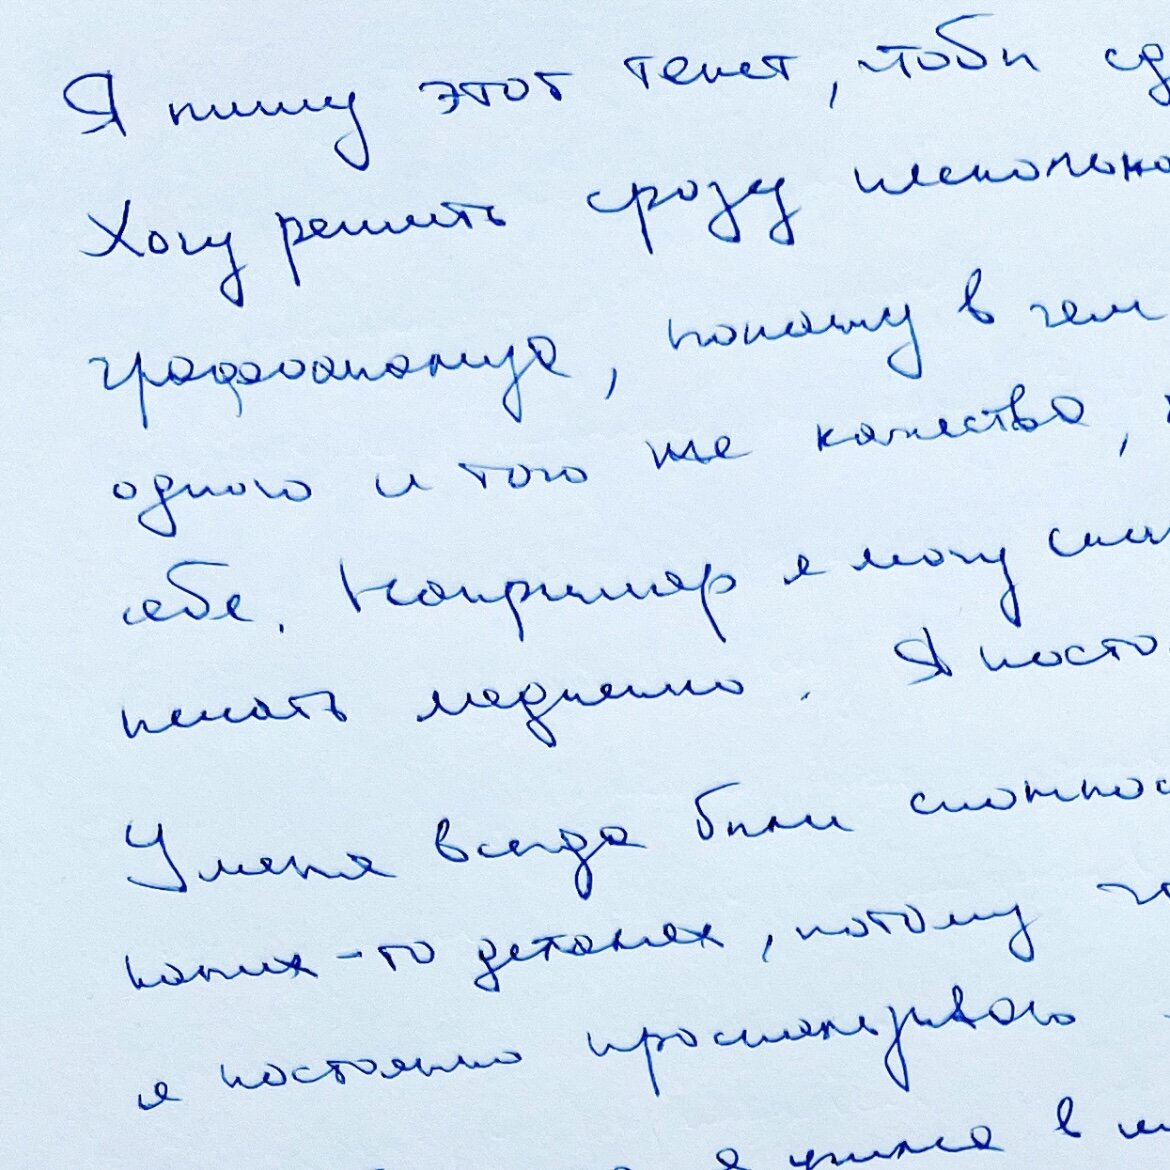 Я пишу этот текст, чтобы сд
Хочу решить сразу несколько
графоанализа, покажу в чем
одного и того же качества,
себе. Например я могу
писать медленно. Я посто
У меня всегда были сложнос
каких-то деталях, потому
я постоянно проскальзываю
я учился в